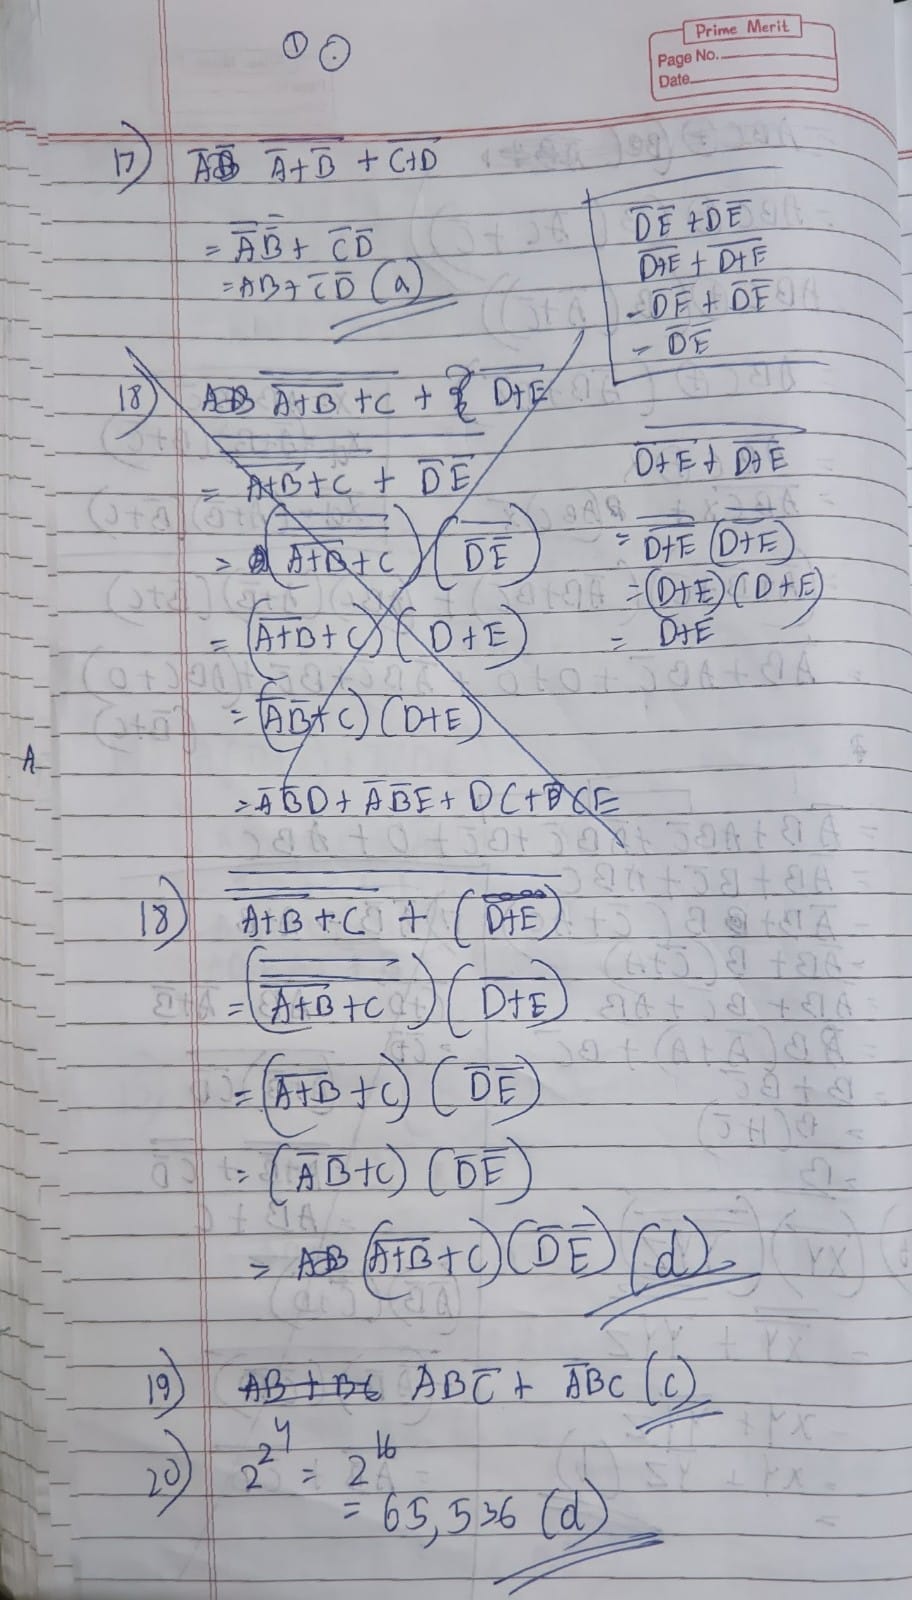 ① ⊙
Prime Merit
Page No.
Date
17) A̅B̅ \overline{A̅+B̅} + \overline{C+D}
= \overline{A̅} \overline{B̅} + C̅ D̅
= AB + C̅ D̅ (a)
D̅ E̅ + D̅ E̅
\overline{D+E} + \overline{D+E}
= D̅ E̅ + D̅ E̅
= D̅ E̅
18) \overline{\overline{A+B} + C} + \overline{D+E}
= \overline{\overline{\overline{A+B} + C} + D̅ E̅}
= (\overline{\overline{\overline{A+B} + C}}) (\overline{D̅ E̅})
= (\overline{A+B} + C) (D+E)
= (A̅ B̅ + C) (D+E)
= A̅ B̅ D + A̅ B̅ E + DC + CE
\overline{\overline{D+E} + \overline{D+E}}
= \overline{\overline{D+E}} (\overline{\overline{D+E}})
= (D+E) (D+E)
= D+E
A
18) \overline{\overline{\overline{A+B} + C} + (D+E)}
= (\overline{\overline{\overline{A+B} + C}}) (\overline{D+E})
= (\overline{A+B} + C) (D̅ E̅)
= (A̅ B̅ + C) (D̅ E̅)
= (\overline{A+B} + C) (D̅ E̅) (d)
19) AB + BC ABC̅ + A̅BC (c)
20) 2^{2^4} = 2^{16}
= 65,536 (d)